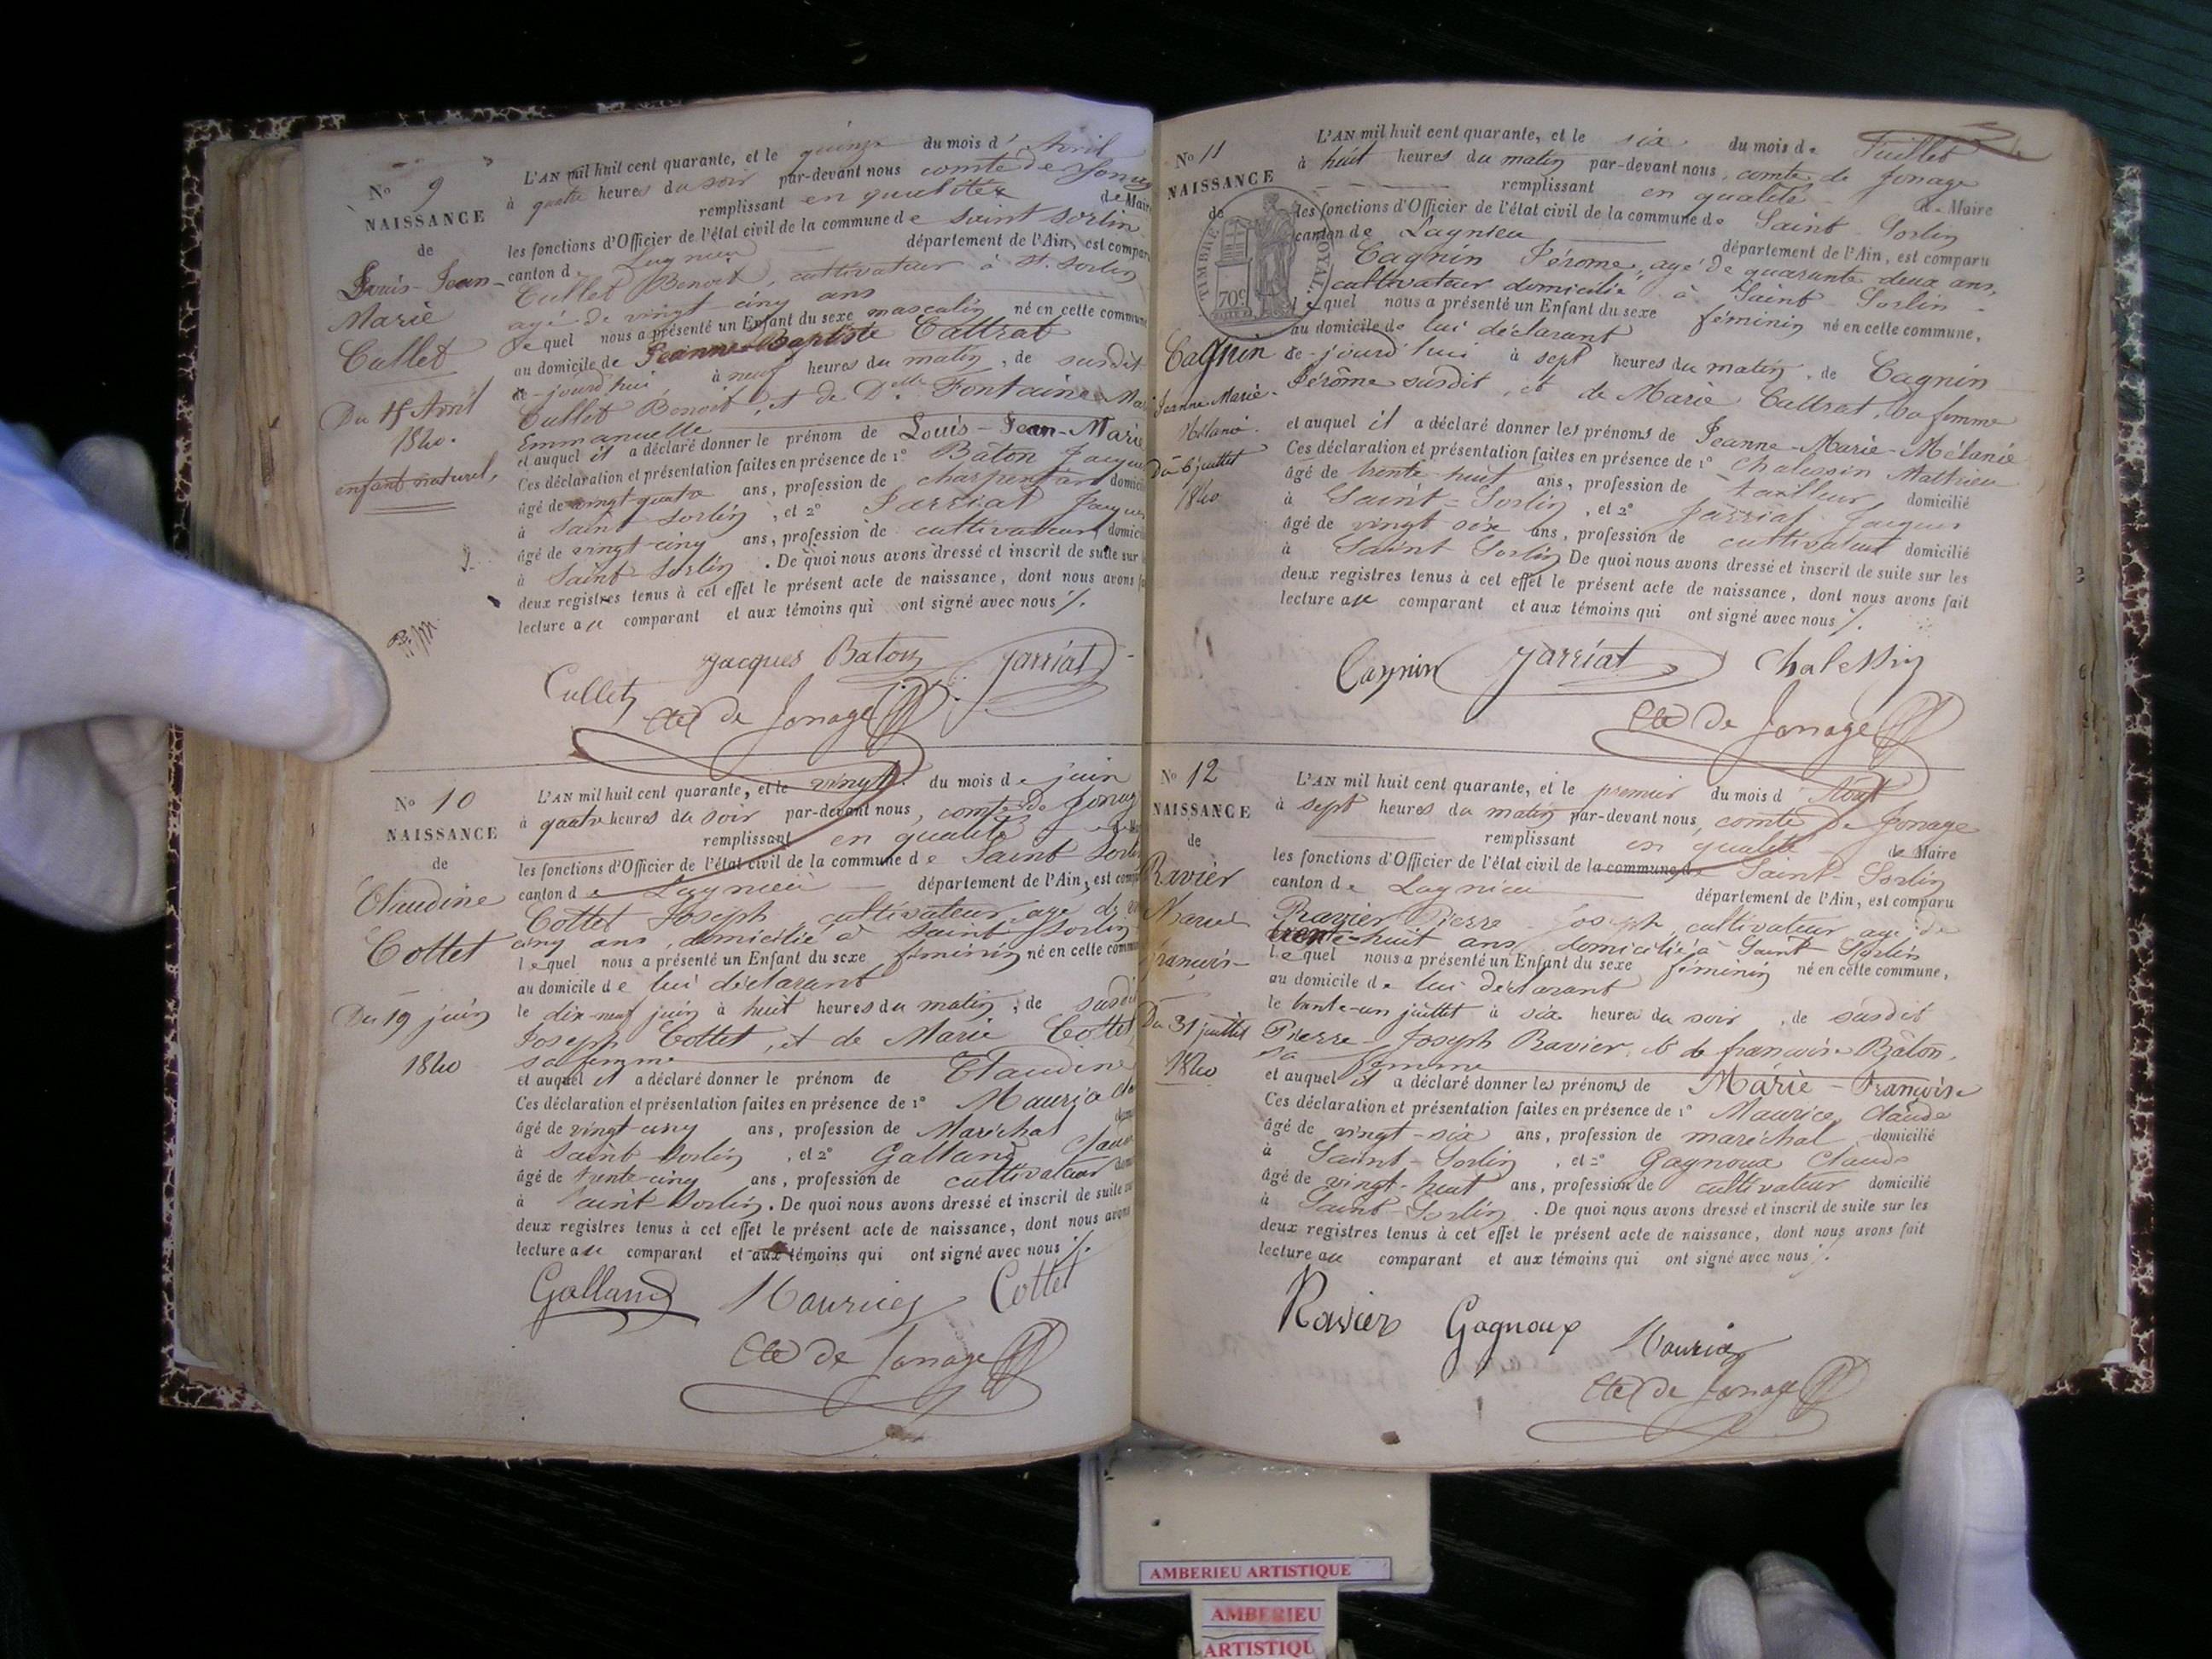 No 9
NAISSANCE
de
Louis-Jean-
Marie
Cullet
Du 15 Avril
1840.
enfant naturel,
L'AN mil huit cent quarante, et le quinze du mois d' Avril
à quatre heures du soir par-devant nous comte de Jonage
remplissant en qualité de Maire
les fonctions d'Officier de l'état civil de la commune de Saint Sorlin
canton de Lagnieu département de l'Ain, est comparu
Cullet Benoit, cultivateur à St. Sorlin
agé de vingt cinq ans
Lequel nous a présenté un Enfant du sexe masculin né en cette commune
au domicile de Jeanne-Baptiste Cattrat
ce-jourd'hui, à neuf heures du matin, de susdit
Cullet Benoit, et de Dlle Fontaine
Emmanuelle
et auquel il a déclaré donner le prénom de Louis-Jean-Marie
Ces déclaration et présentation faites en présence de 1° Bâton Jacques
âgé de vingt-quatre ans, profession de charpentier domicilié
à Saint Sorlin, et 2° Jarriat Jacques
âgé de vingt-cinq ans, profession de cultivateur, domicilié
à Saint-Sorlin. De quoi nous avons dressé et inscrit de suite sur
deux registres tenus à cet effet le présent acte de naissance, dont nous avons
lecture au comparant et aux témoins qui ont signé avec nous ./.
Jacques Baton Jarriat
Cullet
Cte de Jonage
No 10
NAISSANCE
de
Claudine
Cottet
Du 19 juin
1840
L'AN mil huit cent quarante, et le vingt du mois de juin
à quatre heures du soir par-devant nous, comte de Jonage
remplissant en qualité
les fonctions d'Officier de l'état civil de la commune de Saint Sorlin
canton de Lagnieu département de l'Ain, est comparu
Cottet Joseph, cultivateur, age de
cinq ans, domicilié à Saint Sorlin
lequel nous a présenté un Enfant du sexe féminin né en cette commune
au domicile de lui déclarant
le dix-neuf juin à huit heures du matin, de susdit
Joseph Cottet, et de Marie Cottet,
sa femme
et auquel il a déclaré donner le prénom de Claudine
Ces déclaration et présentation faites en présence de 1° Maurice
âgé de vingt-cinq ans, profession de Maréchal
à Saint Sorlin, et 2° Galland Claude
âgé de trente-cinq ans, profession de cultivateur
à Saint-Sorlin. De quoi nous avons dressé et inscrit de suite
deux registres tenus à cet effet le présent acte de naissance, dont nous avons
lecture au comparant et aux témoins qui ont signé avec nous ./.
Galland Maurice Cottet
Cte de Jonage
No 11
NAISSANCE
de
TIMBRE ROYAL
70c
Cagnin
Jeanne Marie-
Mélanie.
Du 6 juillet
1840
L'AN mil huit cent quarante, et le six du mois de Juillet
à huit heures du matin par-devant nous, comte de Jonage
remplissant en qualité de Maire
les fonctions d'Officier de l'état civil de la commune de Saint Sorlin
canton de Lagnieu département de l'Ain, est comparu
Cagnin Jérome, agé de quarante deux ans,
cultivateur domicilié à Saint-Sorlin
lequel nous a présenté un Enfant du sexe féminin né en cette commune,
au domicile de lui déclarant
ce-jourd'hui à sept heures du matin, de Cagnin
Jérôme susdit, et de Marie Cattrat, sa femme
et auquel il a déclaré donner les prénoms de Jeanne-Marie-Mélanie
Ces déclaration et présentation faites en présence de 1° Chalessin Mathieu
âgé de trente-huit ans, profession de tailleur, domicilié
à Saint-Sorlin, et 2° Jarriat Jacques
âgé de vingt six ans, profession de cultivateur domicilié
à Saint Sorlin De quoi nous avons dressé et inscrit de suite sur les
deux registres tenus à cet effet le présent acte de naissance, dont nous avons fait
lecture au comparant et aux témoins qui ont signé avec nous ./.
Cagnin Jarriat Chalessin
Cte de Jonage
No 12
NAISSANCE
de
Ravier
Marie
françoise
Du 31 juillet
1840
L'AN mil huit cent quarante, et le premier du mois d' Aout
à sept heures du matin par-devant nous, comte de Jonage
remplissant en qualité de Maire
les fonctions d'Officier de l'état civil de la commune de Saint-Sorlin
canton de Lagnieu département de l'Ain, est comparu
Ravier Pierre-Joseph, cultivateur age de
trente-huit ans domicilié à Saint Sorlin
lequel nous a présenté un Enfant du sexe féminin né en cette commune,
au domicile de lui déclarant
le trente-un juillet à six heures du soir, de susdit
Pierre-Joseph Ravier, et de françoise Bâton,
sa femme
et auquel il a déclaré donner les prénoms de Marie-Françoise
Ces déclaration et présentation faites en présence de 1° Maurice Claude
âgé de vingt-six ans, profession de maréchal domicilié
à Saint-Sorlin, et 2° Gagnoux Claude
âgé de vingt-huit ans, profession de cultivateur domicilié
à Saint-Sorlin. De quoi nous avons dressé et inscrit de suite sur les
deux registres tenus à cet effet le présent acte de naissance, dont nous avons fait
lecture au comparant et aux témoins qui ont signé avec nous ./.
Ravier Gagnoux Maurice
Cte de Jonage
AMBERIEU ARTISTIQUE
AMBERIEU
ARTISTIQU